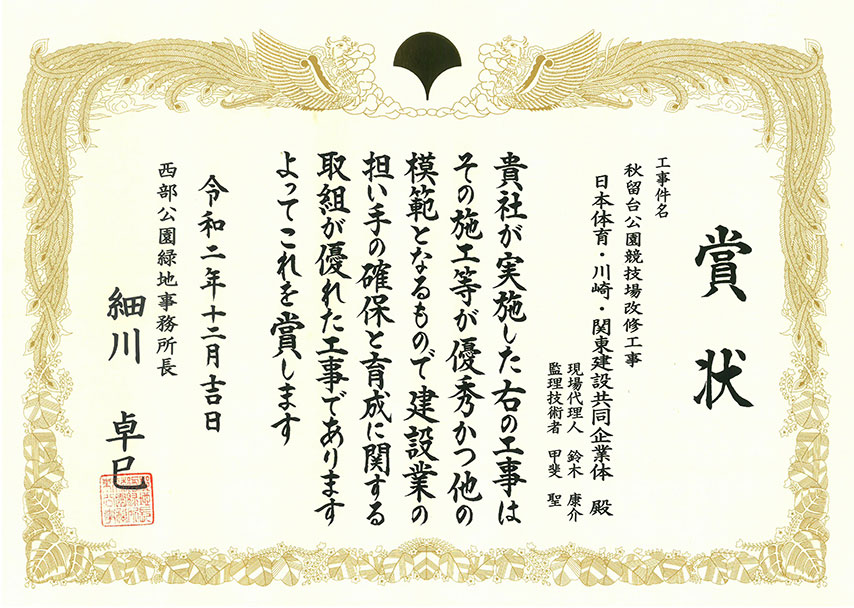 賞状
工事件名
秋留台公園競技場改修工事
日本体育・川崎・関東建設共同企業体 殿
現場代理人 鈴木 康介
監理技術者 甲斐 聖
貴社が実施した右の工事は
その施工等が優秀かつ他の
模範となるもので建設業の
担い手の確保と育成に関する
取組が優れた工事であります
よってこれを賞します
令和二年十二月吉日
西部公園緑地事務所長
細川 卓巳